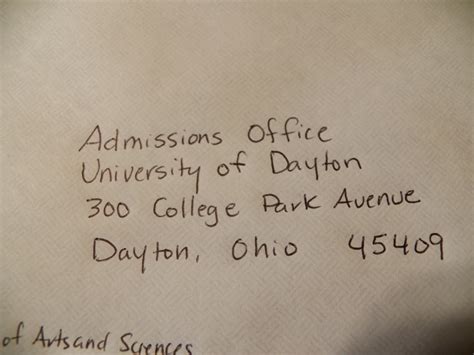 Admissions Office
University of Dayton
300 College Park Avenue
Dayton, Ohio 45409
of Arts and Sciences